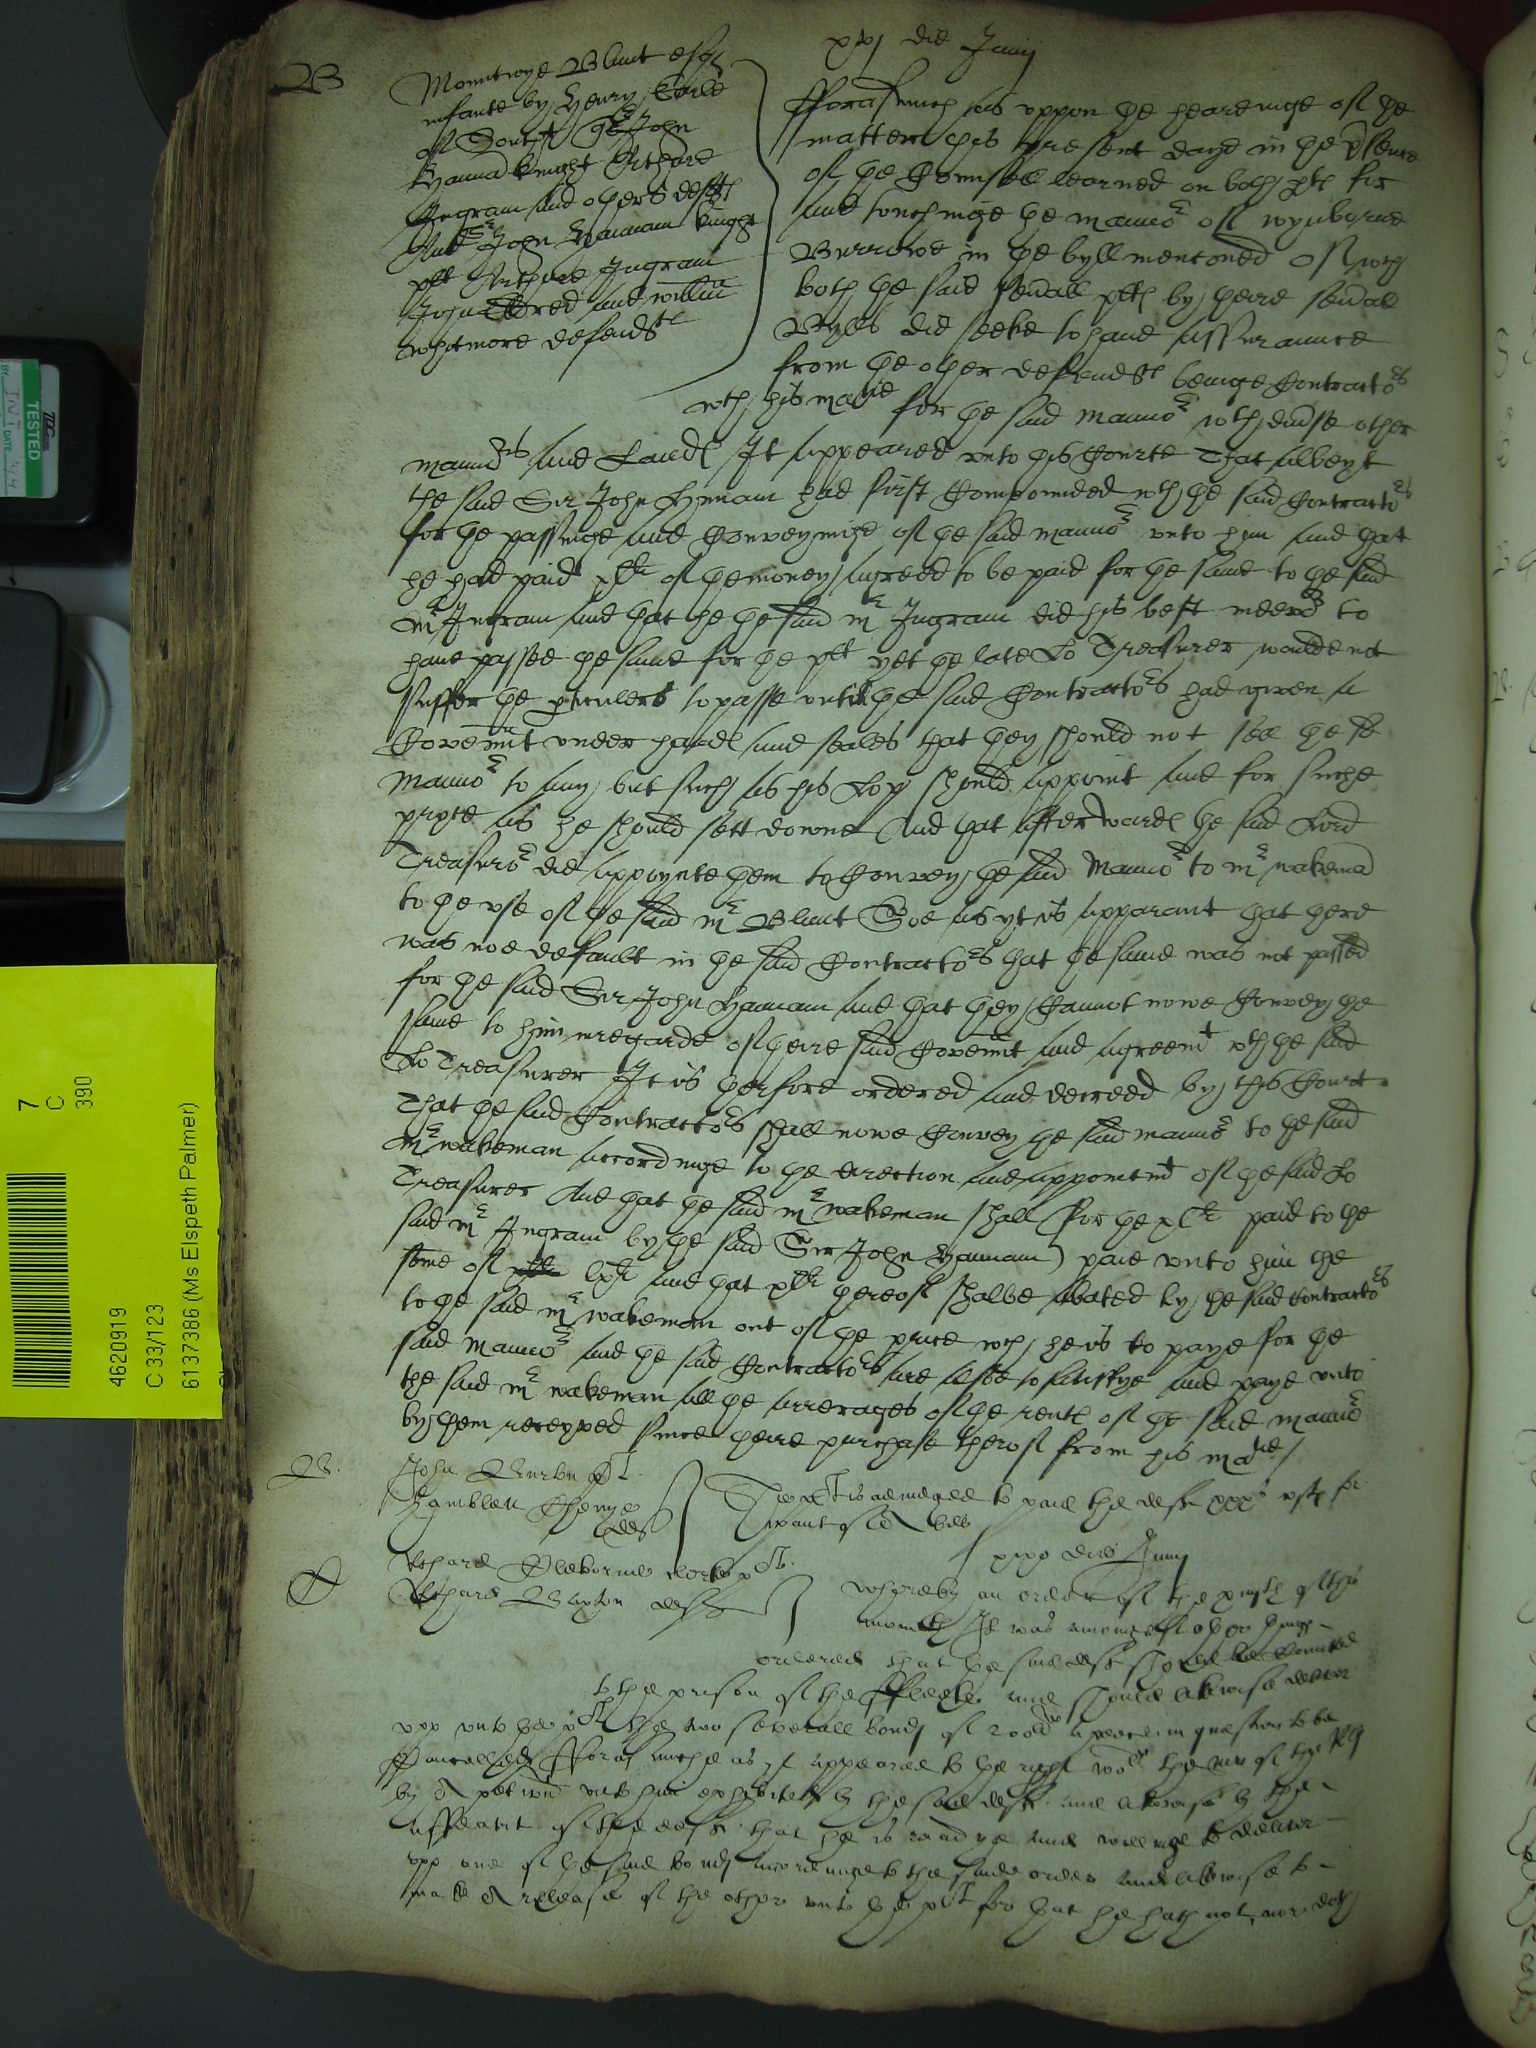 B
Mountioye Blunt esqr
infante by Henry Earle
of South Sr John
Hanna knight Arthure
Ingram and others deftes
And Sr John Hannam knight
plt Arthure Ingram
John Eldred and Willm
Whitmore defendtes
xxj die Junij
Fforasmuch as vppon the hearinge of the
matter this present daye in the presence
of the Counsell learned on both ptes for
and touchinge the mannor of wynborne
Burrowe in the byll mencioned of wch
both the said seuall pltes by theire seuall
Bylls did seeke to haue assuraunce
from the other defendtes beinge Contractors
wth his matie for the said mannor wth diuse other
mannors and Landes It appeared vnto this Courte That albeyt
the said Sr John Hannam had first Compounded wth the said Contractors
for the passinge and Conveyinge of the said mannor vnto him and that
he had paid xli of the money agreed to be paid for the same to the said
Mr Ingram and that he the said mr Ingram did his best indevor to
haue passed the same for the plt yet the late Lo Treasurer would not
suffer the pticulers to passe vntill the said Contractors had given a
Covennt vnder handes and seales that they should not sell the sd
Mannor to any but such as his Lop should appoint and for suche
pryce as he should sett downe And that afterwardes the said Lord
Treasuror did appoynte them to Convey the said Mannor to mr wakeman
to the vse of the said mr Blunt Soe as yt is apparant that there
was noe default in the said Contractors that the same was not passed
for the said Sir John Hannam and that they Cannot nowe Convey the
same to him in regarde of theire said Covennt and agreemt wth the said
Lo Treasurer It is therfore ordered and decreed by this Court
That the said Contractors shall nowe Convey the said mannor to the said
Mr wakeman accordinge to the direction and appointmt of the said Lo
Treasurer And that the said mr wakeman shall (for the xli paid to the
said mr Ingram by the said Sir John Hannam) paie vnto him the
some of lxli and that xli thereof shalbe abated by the said Contractors
to the said mr wakeman out of the price wch he is to paye for the
said mannor and the said Contractors are alsoe to satisfye and paye vnto
the said mr wakeman all the arrerages of the rentes of the said mannor
by them receyved since theire purchase therof from his matie /
B.
John plt.
Cheryes
deft
The plt is adiudged to paie the deft xxxs costes for
want of a bill
xxix die Junij
Richard Cleborne clerke plt.
Richard Buxton deft
Whereby an order of the of this
moneth It was amongest other thinges
ordered that the said deft should be Comitted
to the prison of the Ffleete and should likewise deliver
vpp vnto the plt the two severall bondes of 200li a peece in question to be
Cancelled, Fforasmuche as it appeared to the right wor the mr of the Rolls
by A peticion vnto him exhibited by the said deft and likewise by the
affidavit of the deft that he is readye and willinge to deliver
vpp one of the said bondes accordinge to the said order and likewise to
make A release of the other vnto the plt for that he hath not, nor doth
TESTED
BY
DATE
7
C
390
4620919
C 33/123
6137386 (Ms Elspeth Palmer)